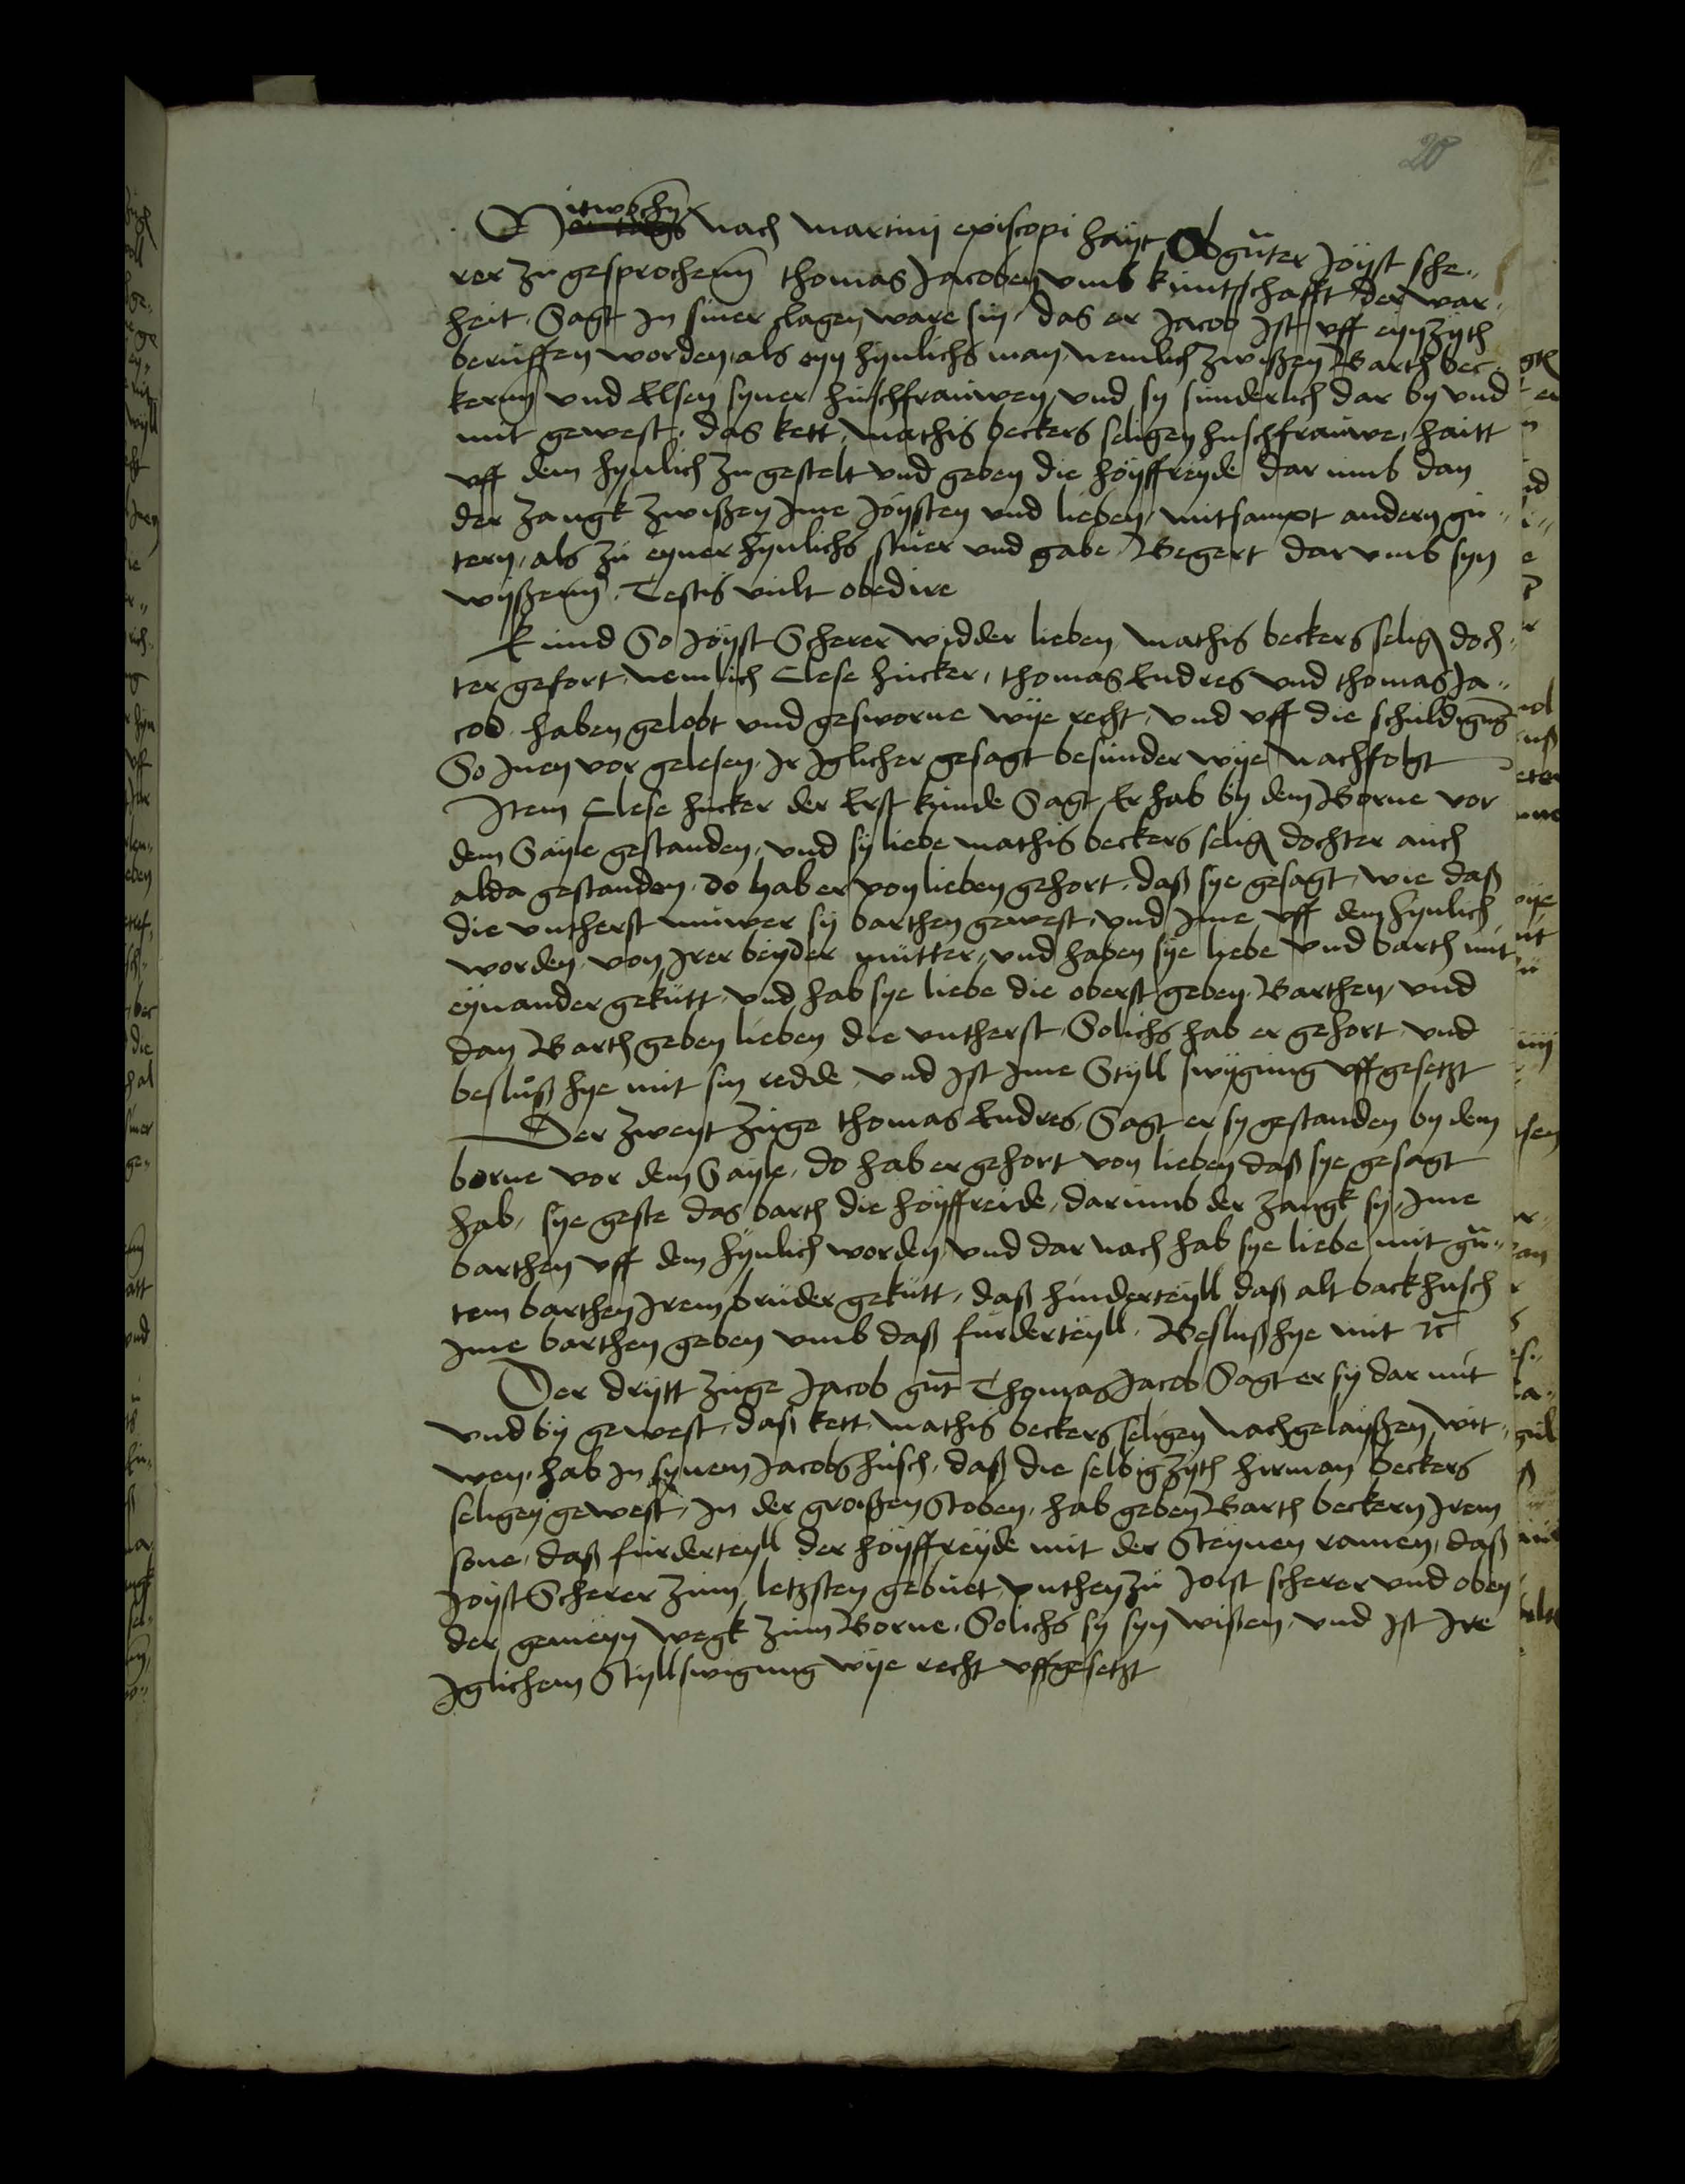 20
Mitwochen nach martinij episcopi hayt Obguter Joÿst sche„
rer zu gesprochenn thomas Jacoben vmb kuntschafft der war„
heit. Sagt in siner clagen ware sin, das er Jacob Ist vff eyn zÿth
beruffen worden, als eyn hÿnlichs man, nemlich zwißen Barth bec„
kernn vnd Elsen syner huschfrauwen, vnd sy sunderlich dar by vnd
mit gewest, das kett, mathis beckers seligen huschfrauwe, haitt
vff dem hynlich zu gestelt vnd geben die hoÿffreyde dar umb dan
der zangk zwißen Ime Joÿsten vnd lieben, mitsampt andern gu„
tern, als zu eyner hynlichs stuer vnd gabe, Begert dar vmb syn
wyßenn. Testis vult obedire
Kund So Joÿst Scherer widder lieben, mathis beckers selig doch„
ter gefort, nemlich Clese hucker, thomas Endres vnd thomas Ja„
cob. haben gelobt vnd gesworne wÿe recht, vnd vff die schuldigung
So Inen vor gelesen. Ir Iglicher gesagt besunder wÿe nachfolgt
Item Clese hucker der Erst kunde Sagt Er hab bÿ dem Borne vor
dem Saÿle gestanden, vnd sÿ liebe mathis beckers selig dochter auch
alda gestanden. do hab er von lieben gehort. daß sye gesagt, wie daß
die vntherst muwer sÿ barthen gewest, vnd Ime vff dem hynlich
worden, von Irer beÿder mutter, vnd haben sÿe liebe vnd barth mit
eÿnander gekutt, vnd hab sye liebe die oberst geben. Barthen, vnd
dan Barth geben lieben die vntherst. Solichs hab er gehort vnd
besluß hye mit sin redde, vnd Ist Ime Styll swÿgung vffgesetzt
Der zweyt zuge thomas Endres, Sagt er sy gestanden by dem
borne vor dem Saÿle, do hab er gehort von lieben daß sye gesagt
hab, sye geste das barth die hoÿffreide, darumb der zangk sy, Ime
barthen vff dem hÿnlich worden, vnd dar nach hab sye liebe mit gu„
tem barthen Irem bruder gekutt, daß hinderteÿll daß alt backhusch
Ime barthen geben vmb daß furderteyll. Besluß hye mit etc
Der drytt zuge Jacob gut Thomas Jacob Sagt er sy dar mit
vnd bÿ gewest, daß kett, mathis beckers seligen nachgelaÿßen wit„
wen, hab in synem Jacobs husch, daß die selbig zÿth hirman beckers
seligen gewest, In der großen Stoben, hab geben Barth beckern Irem
sone, daß furderteyll der hoÿffreÿde mit der Steÿnen ramen, daß
Joÿst Scherer zum letzsten gebuet, vnthen zu Joist scherer vnd oben
der gemeyn wegk zum Borne. Solichs sy syn wißen, vnd Ist Ire
Iglichem Styllswigung wÿe recht vffgesetzt